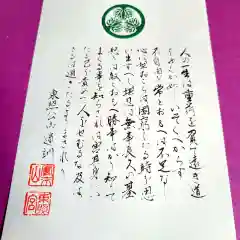 人の一生は重荷を負て遠き道
をゆくがごとし いそぐべからず
不自由を常とおもへば不足なし
心に望おこらば困窮したる時を思
ひ出すべし 堪忍は無事長久の基
怒は敵とおもへ 勝事ばかり知て
まくる事を知らざれば害其身に
いたる おのれを責て人をせむるな 及ば
ざるは過たるよりまされり
東照公御遺訓